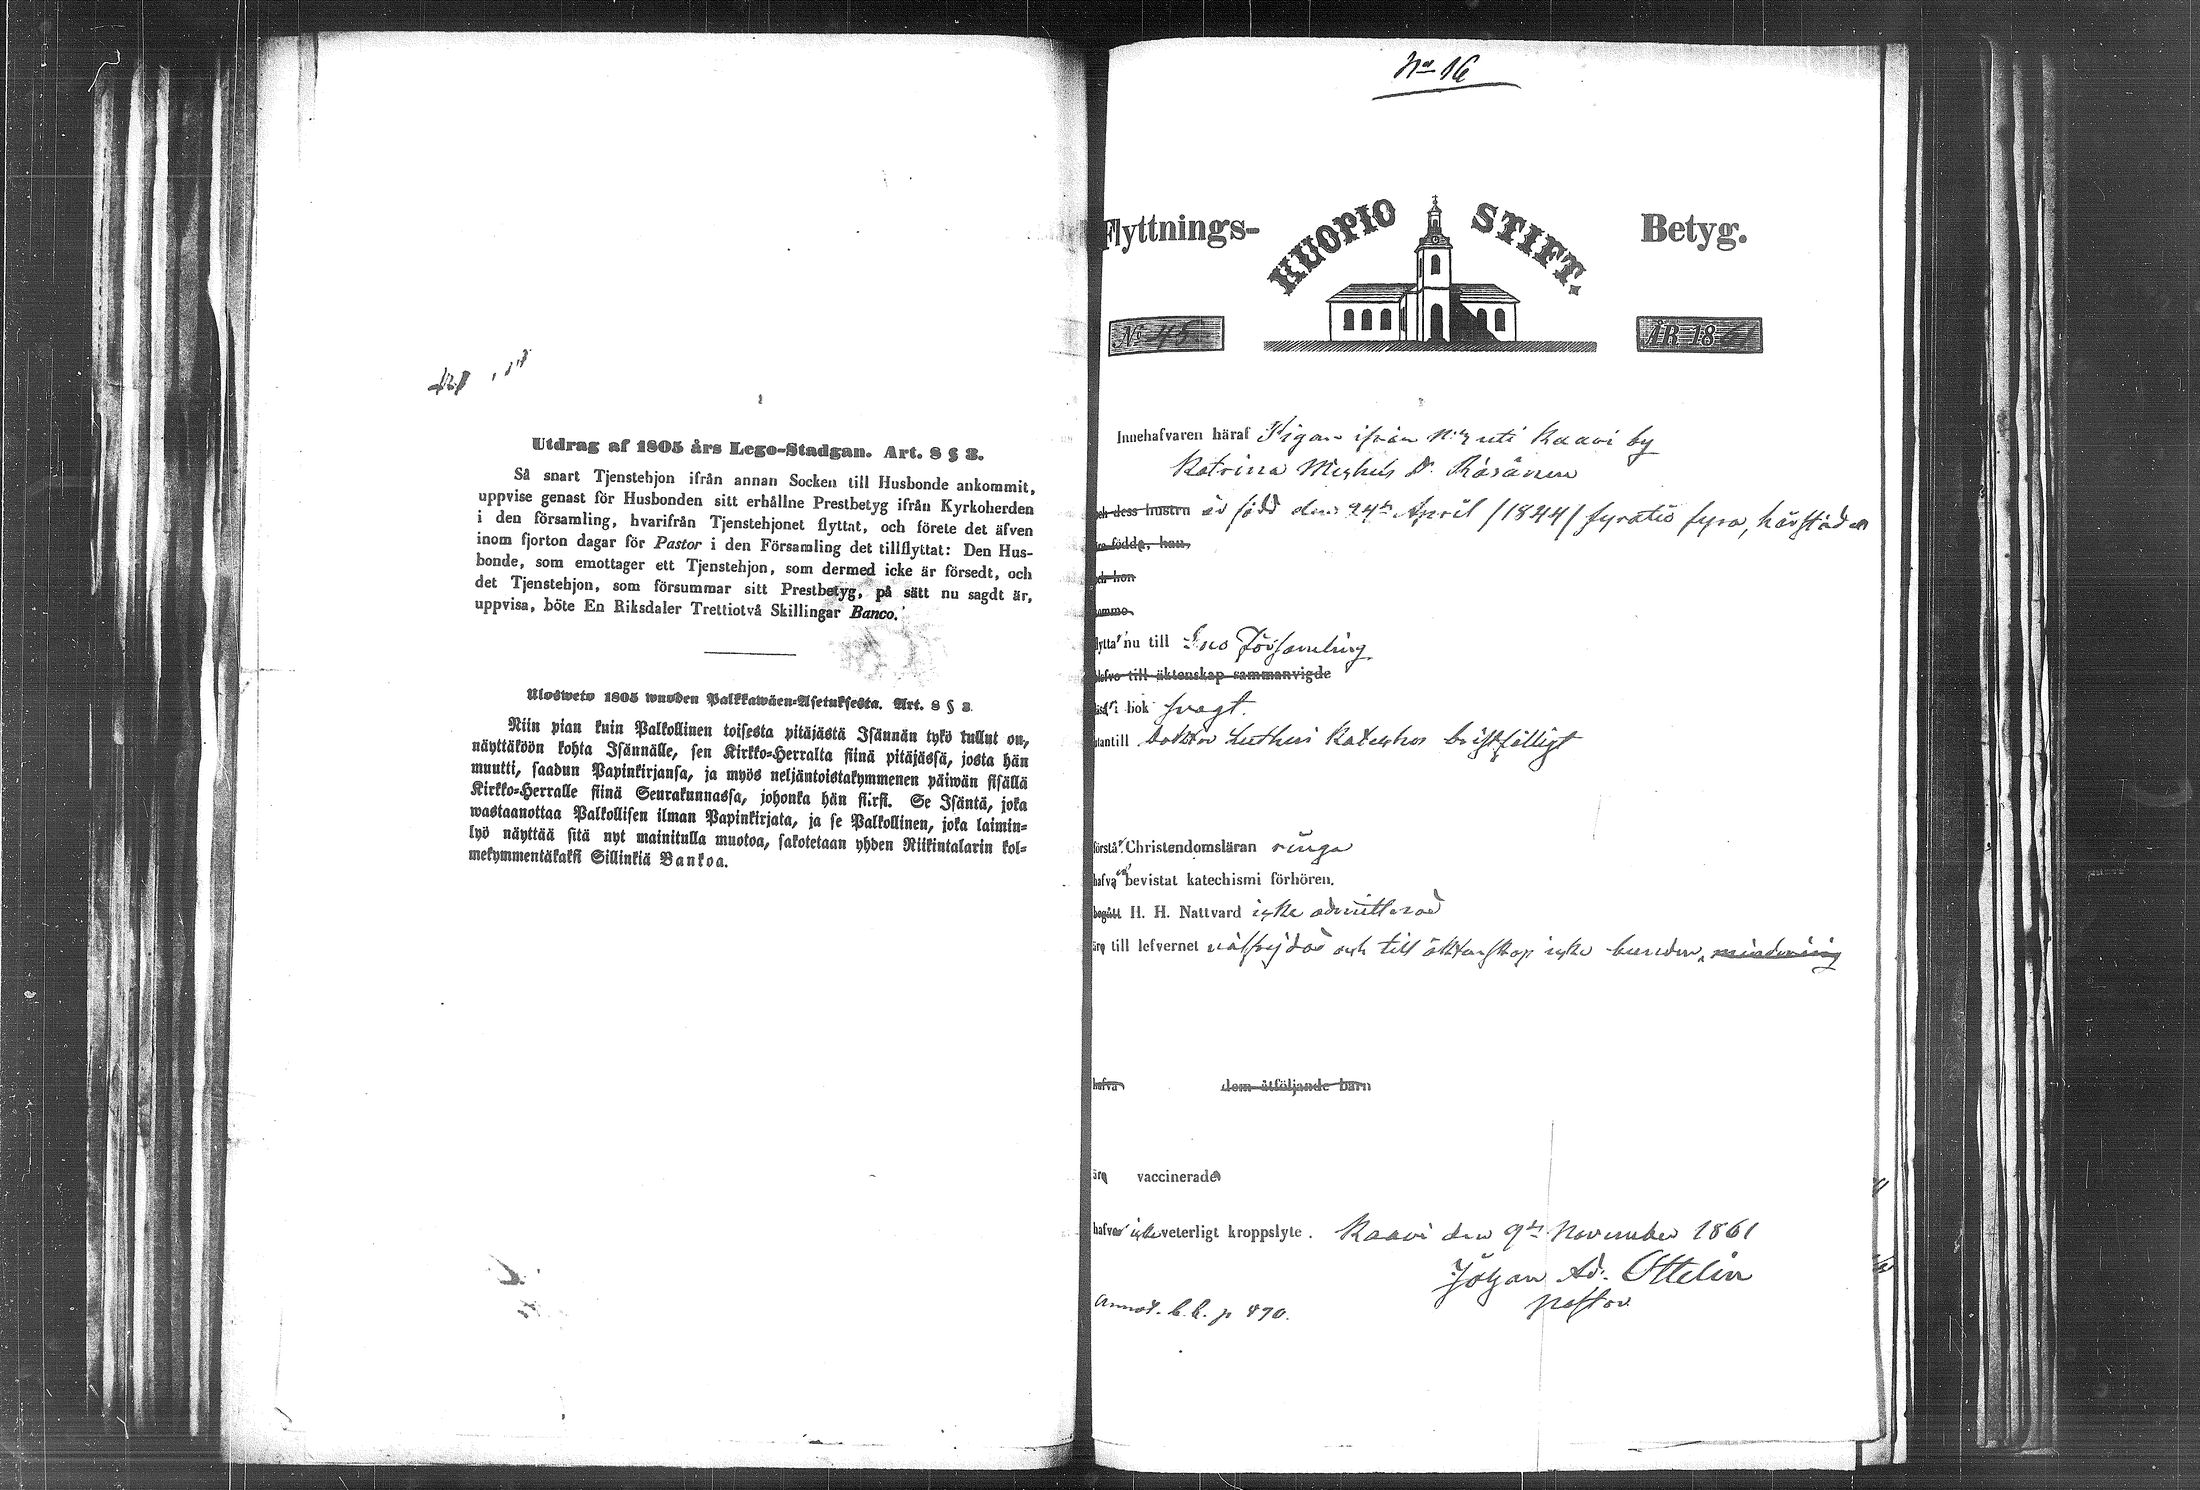 Utdrag af 1805 års Lego-Stadgan. Art. 8 § 3.
Så snart Tjenstehjon ifrån annan Socken till Husbonde ankommit,
uppvise genast för Husbonden sitt erhållne Prestbetyg ifrån Kyrkoherden
i den församling, hvarifrån Tjenstehjonet flyttat, och förete det äfven
inom fjorton dagar för Pastor i den Församling det tillflyttat: Den Hus-
bonde, som emottager ett Tjenstehjon, som dermed icke är försedt, och
det Tjenstehjon, som försummar sitt Prestbetyg, på sätt nu sagdt är,
uppvisa, böte En Riksdaler Trettiotvå Skillingar Banco.
Ulosweto 1805 wuoden Palkkawäen-Asetuksesta. Art. 8 § 3
Niin pian kuin Palkollinen toisesta pitäjästä Isännän tykö tullut on,
näyttäköön kohta Isännälle, sen Kirkko-Herralta siinä pitäjässä, josta hän
muutti, saadun Papinkirjansa, ja myös neljäntoistakymmenen päiwän sisällä
Kirkko-Herralle siinä Seurakunnassa, johonka hän siirsi. Se Isäntä, joka
wastaanottaa Palkollisen ilman Papinkirjata, ja se Palkollinen, joka laimin-
lyö näyttää sitä nyt mainitulla muotoa, sakotetaan yhden Riikintalarin kol-
mekymmentäkaksi Sillinkiä Bankoa.
No 16
Flyttnings-
KUOPIO STIFT.
Betyg.
No 45
ÅR 1861
Innehafvaren häraf Pigan ifrån No 4 uti Kaavi by
Katrina Michels Dr. Räsänen
och dess hustru är född den 24de April /1844/ fyratio fyra, härstädes
äro födde, han,
och hon
samme
flytta nu till Eno Församling
blefvo till äktenskap sammanvigde
läsa i bok svagt.
utantill doktor Lutheri Kateches bristfälligt
förstå Christendomsläran ringa
hafva bevistat katechismi förhören.
begått H. H. Nattvard icke admitterad
äro till lefvernet oåtstrydd och till äktenskap icke bunden, minderårig
hafva dem åtföljande barn
äro vaccinerade
hafva icke veterligt kroppslyte. Kaavi den 9de November 1861
Johan Ad. Ottelin
pastor
Annot. b. b. p 470.